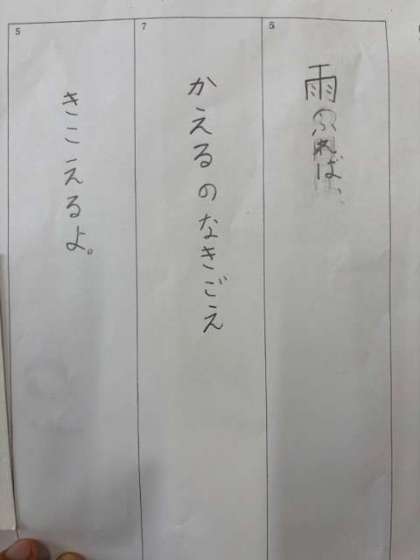 5
雨ふれば、
7
かえるのなきごえ
5
きこえるよ。